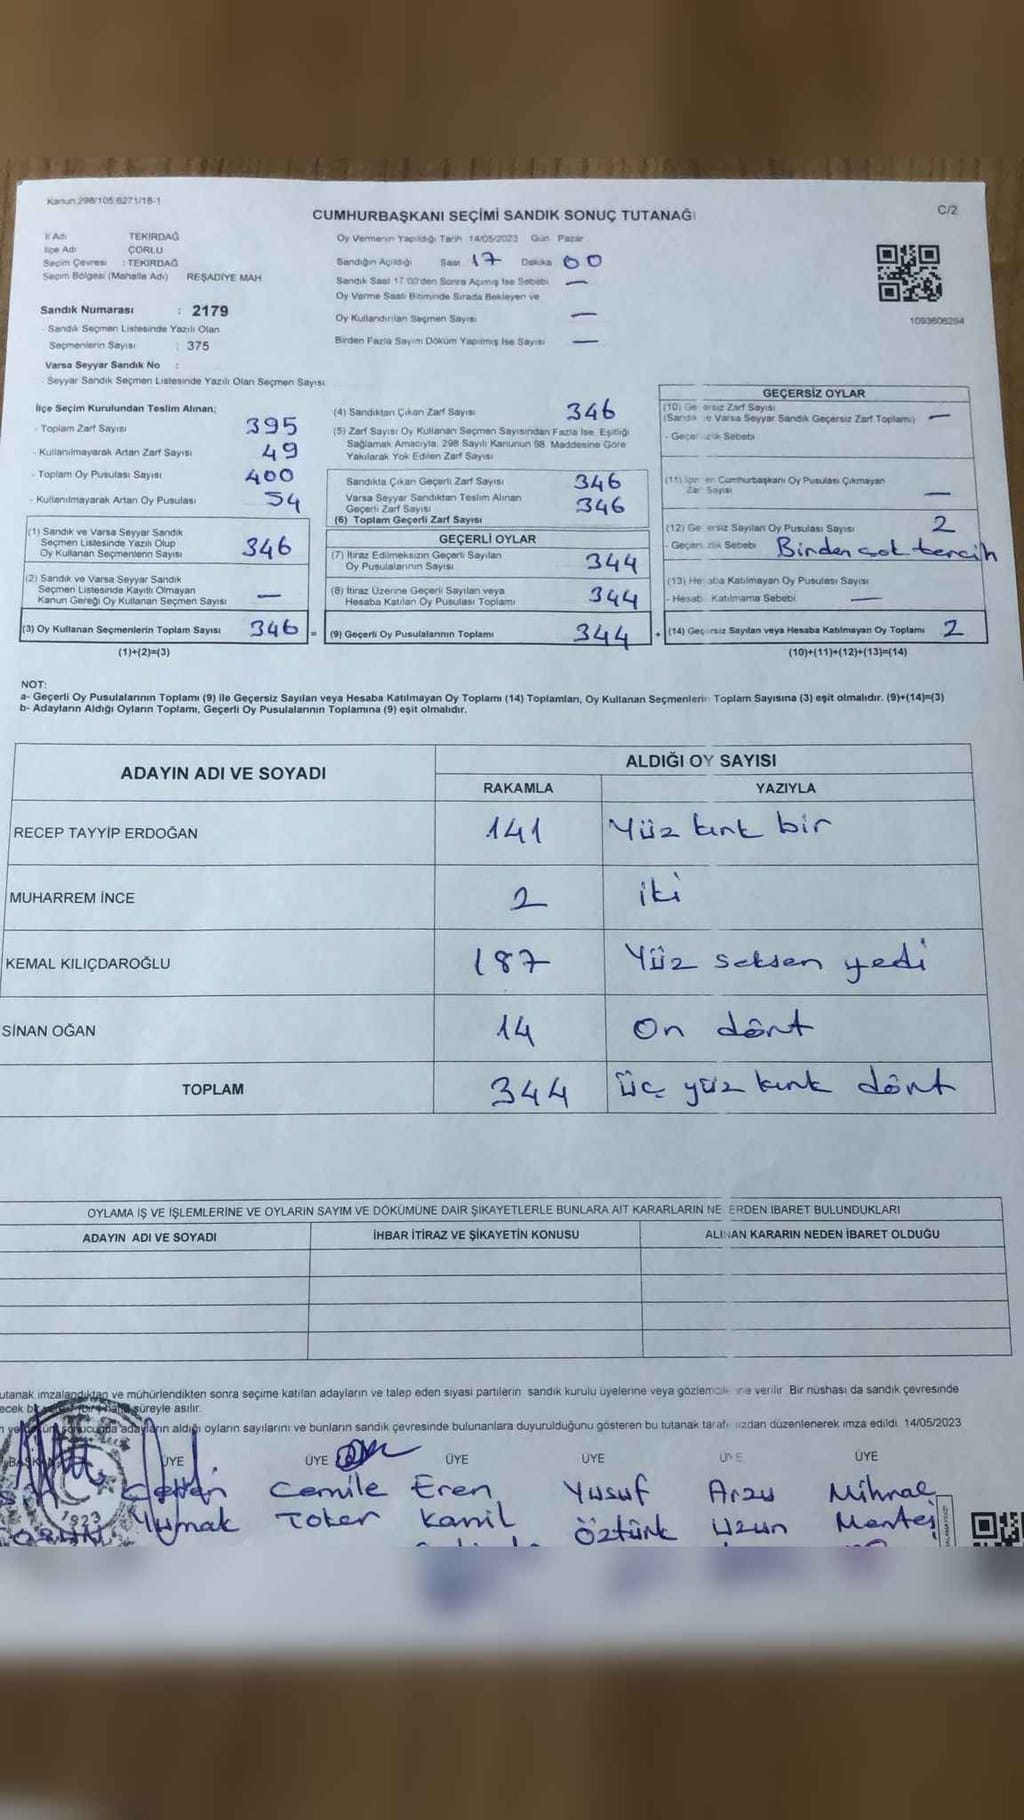 Kanun 298/105,6271/18-1
CUMHURBAŞKANI SEÇİMİ SANDIK SONUÇ TUTANAĞI
C/2
İl Adı TEKİRDAĞ
İlçe Adı ÇORLU
Seçim Çevresi : TEKİRDAĞ
Seçim Bölgesi (Mahalle Adı) REŞADİYE MAH.
Sandık Numarası : 2179
- Sandık Seçmen Listesinde Yazılı Olan
Seçmenlerin Sayısı : 375
Varsa Seyyar Sandık No :
- Seyyar Sandık Seçmen Listesinde Yazılı Olan Seçmen Sayısı
Oy Vermenin Yapıldığı Tarih 14/05/2023 Gün Pazar
Sandığın Açıldığı Saat 17 Dakika 00
Sandık Saat 17 00'den Sonra Açımış İse Sebebi —
Oy Verme Saati Bitiminde Sırada Bekleyen ve
Oy Kullandırılan Seçmen Sayısı —
Birden Fazla Sayım Döküm Yapılmış İse Sayısı —
1093606294
İlçe Seçim Kurulundan Teslim Alınan;
- Toplam Zarf Sayısı 395
- Kullanılmayarak Artan Zarf Sayısı 49
- Toplam Oy Pusulası Sayısı 400
- Kullanılmayarak Artan Oy Pusulası 54
(1) Sandık ve Varsa Seyyar Sandık
Seçmen Listesinde Yazılı Olup
Oy Kullanan Seçmenlerin Sayısı 346
(2) Sandık ve Varsa Seyyar Sandık
Seçmen Listesinde Kayıtlı Olmayan
Kanun Gereği Oy Kullanan Seçmen Sayısı —
(3) Oy Kullanan Seçmenlerin Toplam Sayısı 346 =
(1)+(2)=(3)
(4) Sandıktan Çıkan Zarf Sayısı 346
(5) Zarf Sayısı Oy Kullanan Seçmen Sayısından Fazla İse, Eşitliği
Sağlamak Amacıyla, 298 Sayılı Kanunun 98. Maddesine Göre
Yakılarak Yok Edilen Zarf Sayısı
Sandıkta Çıkan Geçerli Zarf Sayısı 346
Varsa Seyyar Sandıktan Teslim Alınan
Geçerli Zarf Sayısı 346
(6) Toplam Geçerli Zarf Sayısı
GEÇERLİ OYLAR
(7) İtiraz Edilmeksizin Geçerli Sayılan
Oy Pusulalarının Sayısı 344
(8) İtiraz Üzerine Geçerli Sayılan veya
Hesaba Katılan Oy Pusulası Toplamı 344
(9) Geçerli Oy Pusulalarının Toplamı 344 +
GEÇERSİZ OYLAR
(10) Ge ersiz Zarf Sayısı
(Sandık e Varsa Seyyar Sandık Geçersiz Zarf Toplamı) —
- Geçersizlik Sebebi
en Cumhurbaşkanı Oy Pusulası Çıkmayan
Zarf Sayısı —
(12) Ge ersiz Sayılan Oy Pusulası Sayısı 2
- Geçersizlik Sebebi Birden çok tercih
(13) He aba Katılmayan Oy Pusulası Sayısı
- Hesaba Katılmama Sebebi —
(14) Geçersiz Sayılan veya Hesaba Katılmayan Oy Toplamı 2
(10)+(11)+(12)+(13)=(14)
NOT:
a- Geçerli Oy Pusulalarının Toplamı (9) ile Geçersiz Sayılan veya Hesaba Katılmayan Oy Toplamı (14) Toplamları, Oy Kullanan Seçmenlerin Toplam Sayısına (3) eşit olmalıdır. (9)+(14)=(3)
b- Adayların Aldığı Oyların Toplamı, Geçerli Oy Pusulalarının Toplamına (9) eşit olmalıdır.
ADAYIN ADI VE SOYADI
ALDIĞI OY SAYISI
RAKAMLA YAZIYLA
RECEP TAYYİP ERDOĞAN 141 Yüz kırk bir
MUHARREM İNCE 2 iki
KEMAL KILIÇDAROĞLU 187 Yüz seksen yedi
SİNAN OĞAN 14 On dört
TOPLAM 344 üç yüz kırk dört
OYLAMA İŞ VE İŞLEMLERİNE VE OYLARIN SAYIM VE DÖKÜMÜNE DAİR ŞİKAYETLERLE BUNLARA AİT KARARLARIN NE ERDEN İBARET BULUNDUKLARI
ADAYIN ADI VE SOYADI İHBAR İTİRAZ VE ŞİKAYETİN KONUSU ALINAN KARARIN NEDEN İBARET OLDUĞU
utanak imzalandıktan ve mühürlendikten sonra seçime katılan adayların ve talep eden siyasi partilerin sandık kurulu üyelerine veya gözlemcilerine verilir Bir nüshası da sandık çevresinde
ecek bir hafta süreyle asılır.
sonucunda adayların aldığı oyların sayılarını ve bunların sandık çevresinde bulunanlara duyurulduğunu gösteren bu tutanak tarafımızdan düzenlenerek imza edildi. 14/05/2023
BAŞKAN ÜYE ÜYE ÜYE ÜYE ÜYE ÜYE
Cemile Eren Yusuf Arzu Mihrac
Yumak Toker Kamil Öztürk Uzun Menteş
1923